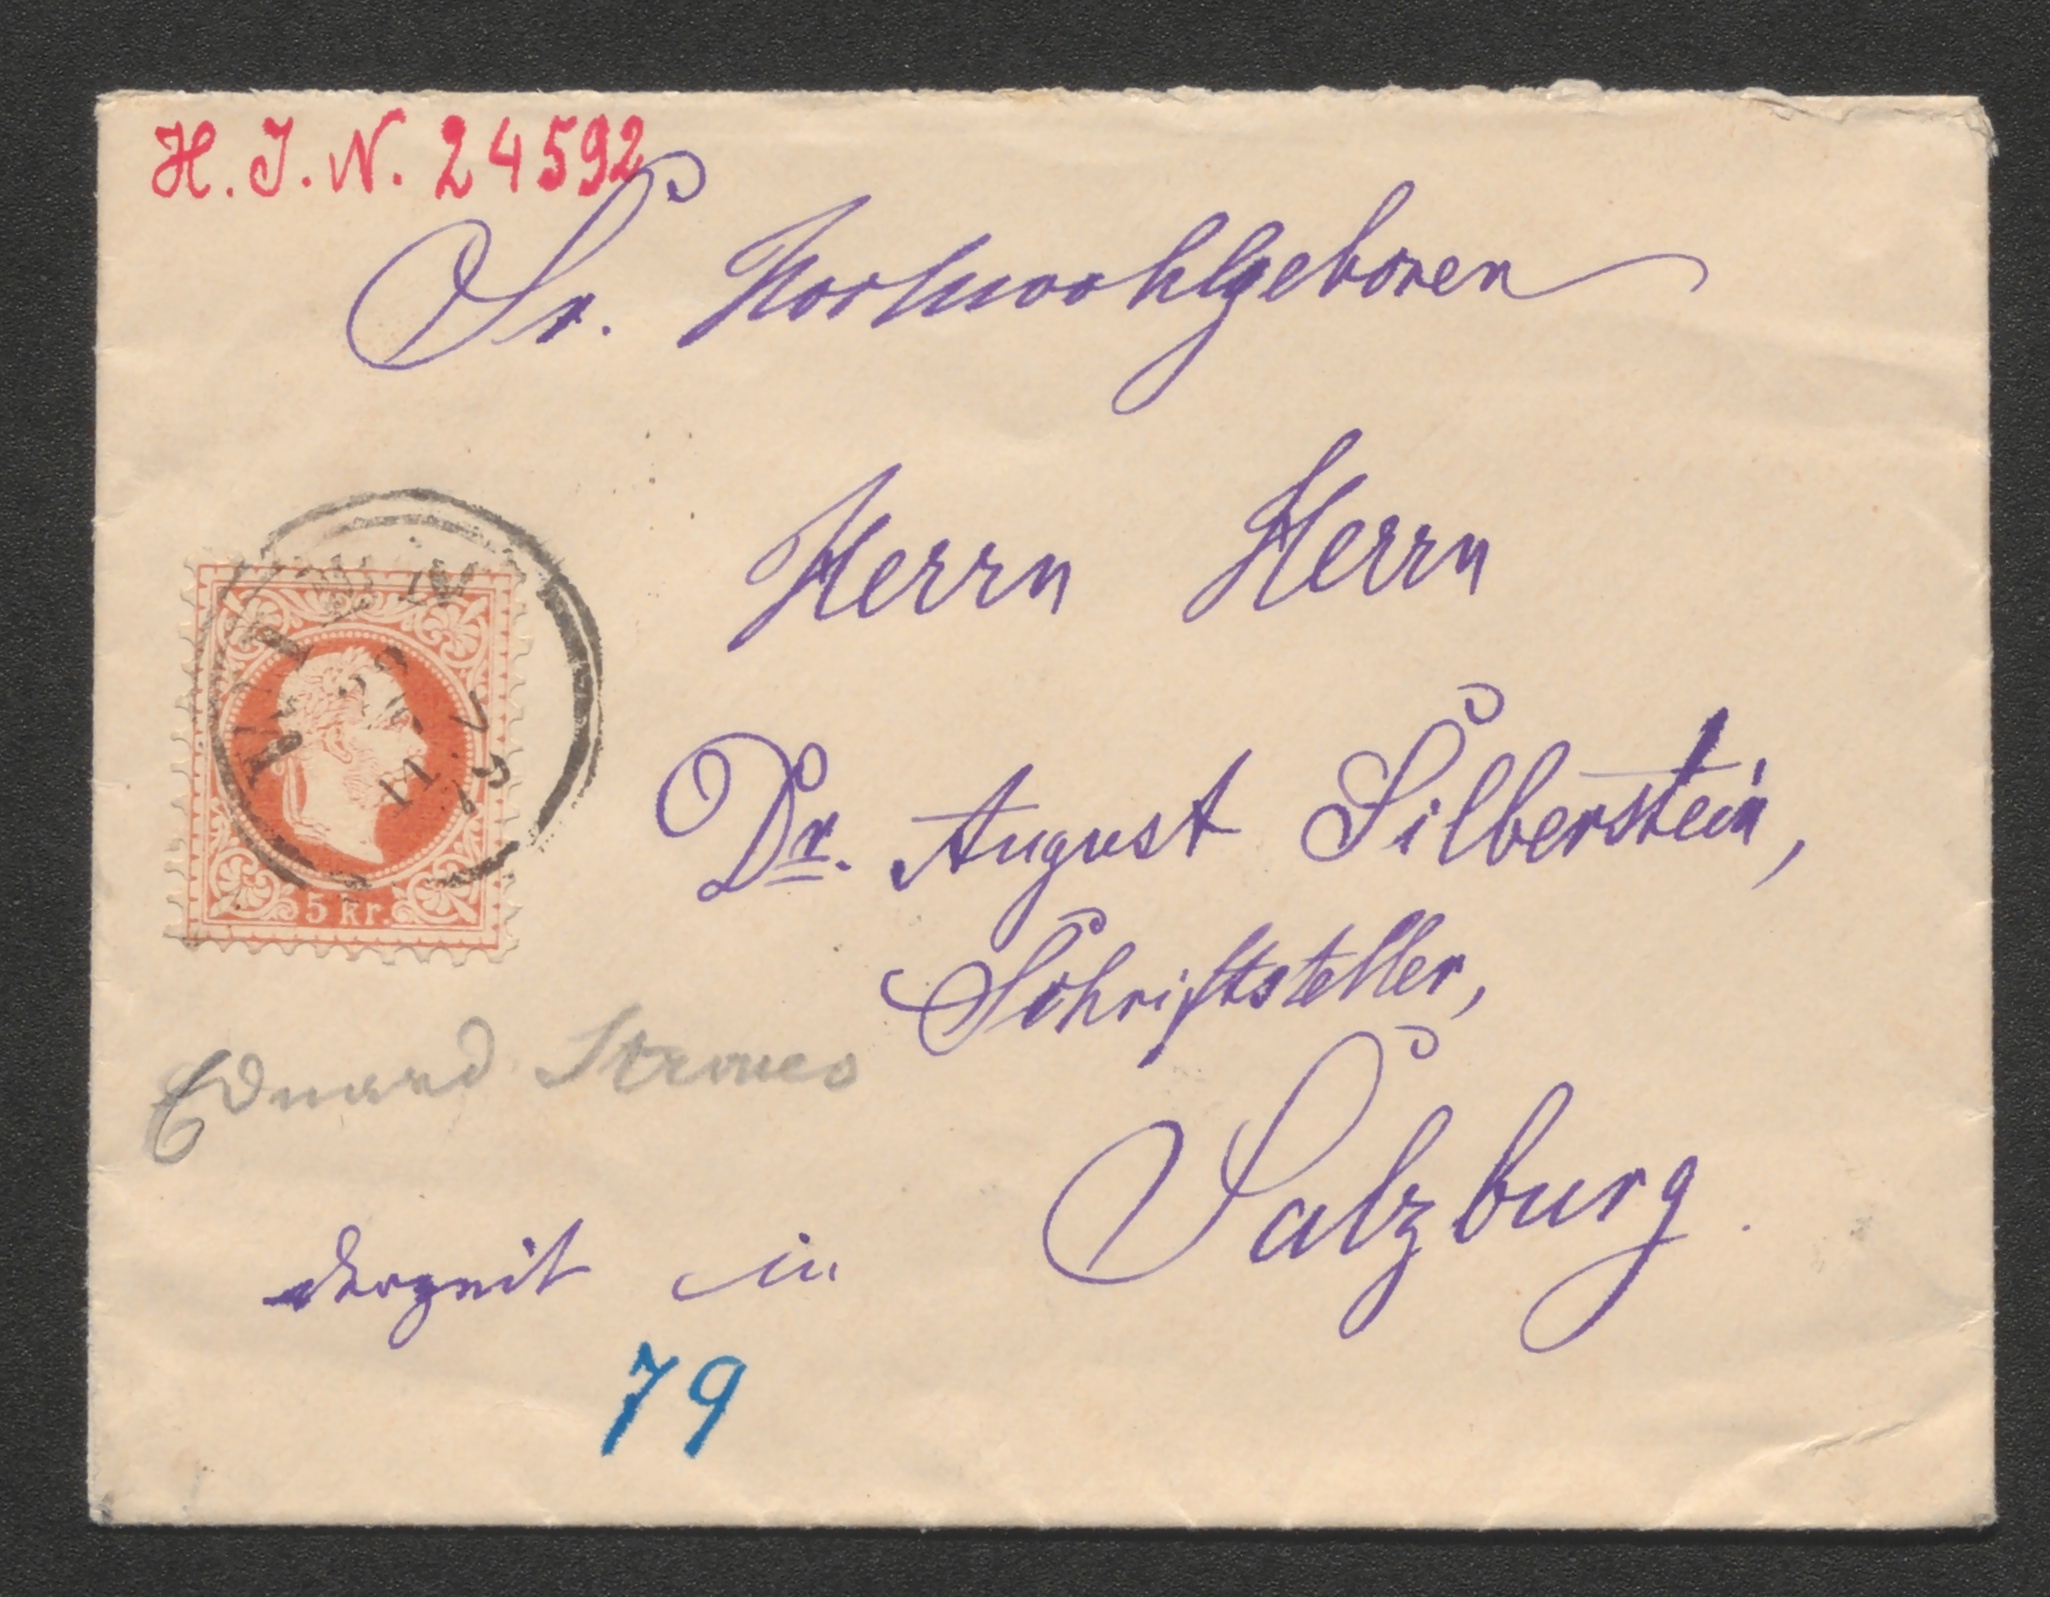 H. J. N. 24592
Sr. Hochwohlgeboren
Herrn Herrn
Dr. August Silberstein,
Schriftsteller,
5 kr.
Eduard Strauss
derzeit in Salzburg.
79